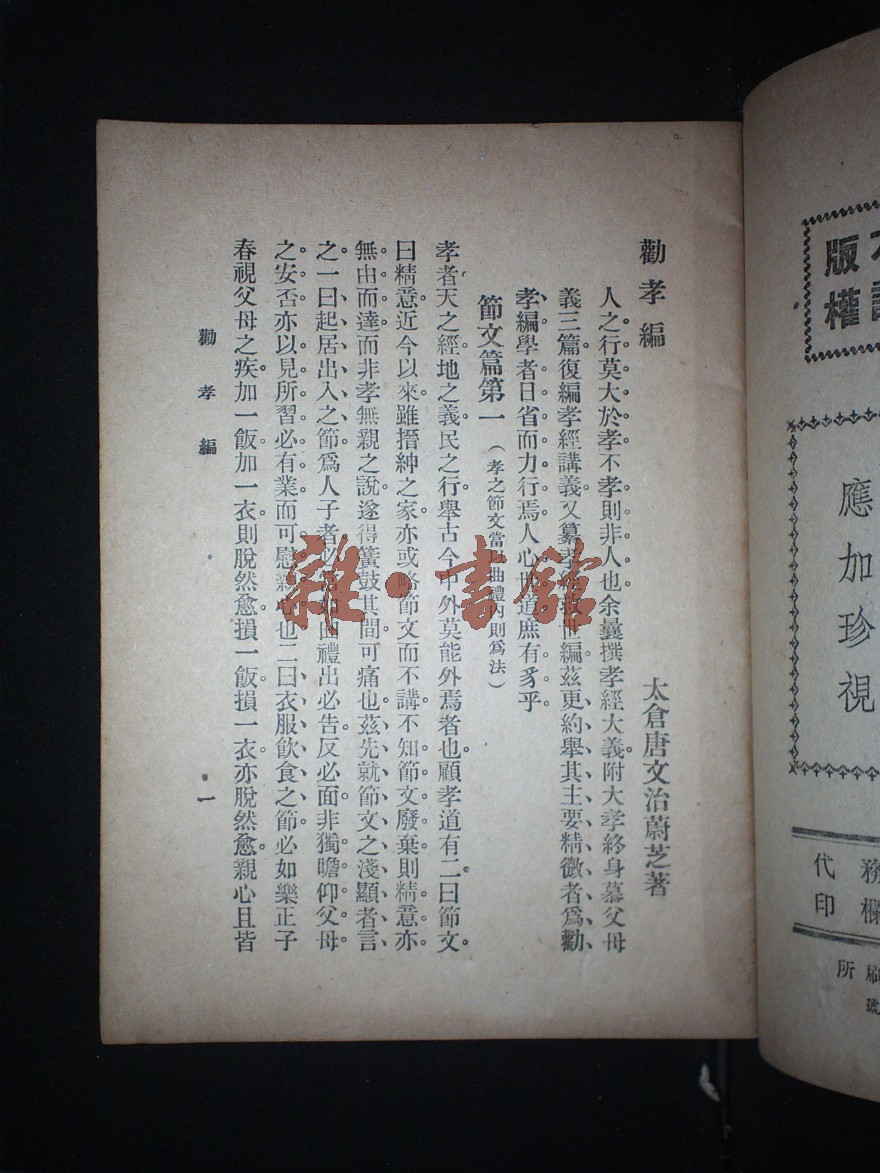 勸孝編
太倉唐文治蔚芝著
人之行莫大於孝不孝則非人也余曩撰孝經大義附大孝終身慕父母
義三篇復編孝經講義又纂孝經救世編茲更約舉其主要精微者爲勸
孝編學者日省而力行焉人心世道庶有豸乎
節文篇第一(孝之節文當以曲禮內則爲法)
孝者天之經地之義民之行舉古今中外莫能外焉者也顧孝道有二曰節文
曰精意近今以來雖搢紳之家亦或略節文而不講不知節文廢棄則精意亦
無由而達而非孝無親之說遂得簧鼓其間可痛也茲先就節文之淺顯者言
之一曰起居出入之節爲人子者必當如曲禮出必告反必面非獨瞻仰父母
之安否亦以見所習必有業而可慰親心也二曰衣服飲食之節必如樂正子
春視父母之疾加一飯加一衣則脫然愈損一飯損一衣亦脫然愈親心且皆
勸孝編
一
雜·書館
版權
應加珍視
代印
務欄
所
刷